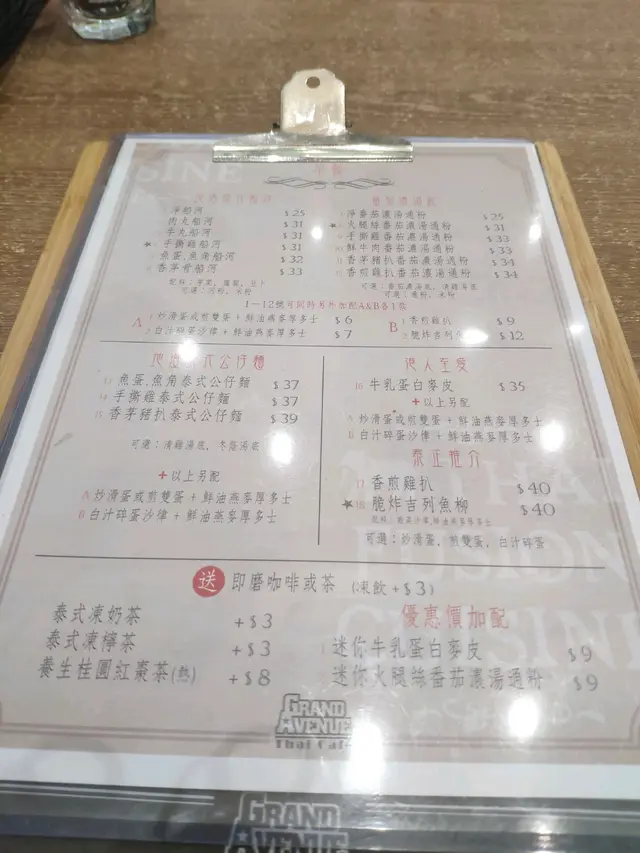 SINE
早餐
淨船河 $25
肉丸船河 $31
牛丸船河 $31
★ 手撕雞船河 $31
魚蛋,魚角船河 $32
香茅骨船河 $33
可選：河粉，米粉
1 淨番茄濃湯通粉 $25
★ 火腿絲番茄濃湯通粉 $31
手撕雞番茄濃湯通粉 $33
鮮牛肉番茄濃湯通粉 $33
香茅豬扒番茄濃湯通粉 $34
香煎雞扒番茄濃湯通粉 $34
可選：番茄濃湯底，清雞湯底
1－12號可同時另外加配A&B各1款
A 1 炒滑蛋或煎雙蛋 + 鮮油燕麥厚多士 $6
2 白汁碎蛋沙律 + 鮮油燕麥厚多士 $7
B 1 香煎雞扒 $9
2 脆炸吉列 $12
泰式公仔麵
13 魚蛋,魚角泰式公仔麵 $37
14 手撕雞泰式公仔麵 $37
15 香茅豬扒泰式公仔麵 $39
可選：清雞湯底，冬蔭湯底
+以上另配
A 炒滑蛋或煎雙蛋 + 鮮油燕麥厚多士
B 白汁碎蛋沙律 + 鮮油燕麥厚多士
港人至愛
16 牛乳蛋白麥皮 $35
+以上另配
A 炒滑蛋或煎雙蛋 + 鮮油燕麥厚多士
B 白汁碎蛋沙律 + 鮮油燕麥厚多士
泰正推介
17 香煎雞扒 $40
★ 18 脆炸吉列魚柳 $40
可選：炒滑蛋，煎雙蛋，白汁碎蛋
THAI
FUSION
CUISINE
送 即磨咖啡或茶 (凍飲+$3)
泰式凍奶茶 +$3
泰式凍檸茶 +$3
養生桂圓紅棗茶(熱) +$8
優惠價加配
1 迷你牛乳蛋白麥皮 $9
2 迷你火腿絲番茄濃湯通粉 $9
GRAND
AVENUE
Thai Café
GRAND
AVENUE